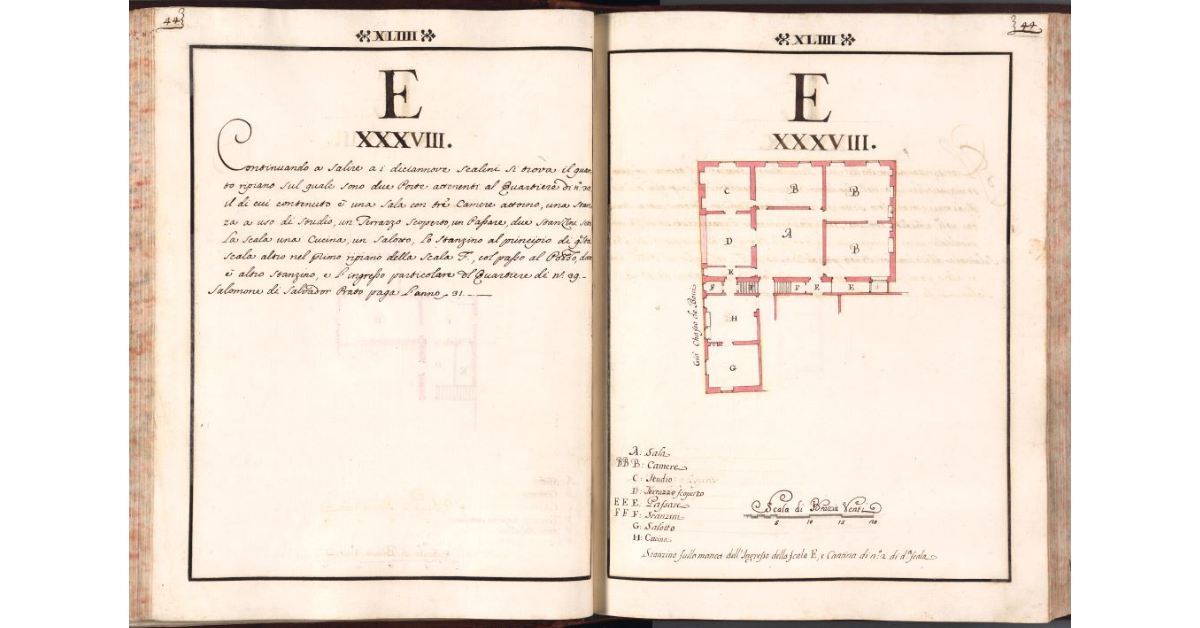 44
XLIIII
E
XXXVIII.
Continuando a salire a i diciannove scalini si trova il quar-
to ripiano sul quale sono due Porte attenenti al Quartiere di n.º 38
il di cui contenuto è una Sala con trè Camere attorno, una stan-
za a uso di Studio, un Terrazzo scoperto, un Passare, due Stanzini
La scala una Cucina, un Salotto, lo Stanzino al principio di
scala altro nel primo ripiano della Scala F., col passo al
è altro stanzino, e l'ingresso particolare del Quartiere di n.º 39.
Salomone di Salvador Prato paga l'anno 31.
44
XLIIII
E
XXXVIII.
C
B
B
D
A
B
E
F
F
F
E
E
H
G
A: Sala
BB B: Camere
C: Studio
D: Terrazzo scoperto
E E E: Passare
F F F: Stanzini
G: Salotto
H: Cucina
Scala di Braccia Venti
5 10 15 20
Stanzino sulla manca dell'Ingresso della scala E, e Cantina di n.º 2 di d.ª scala